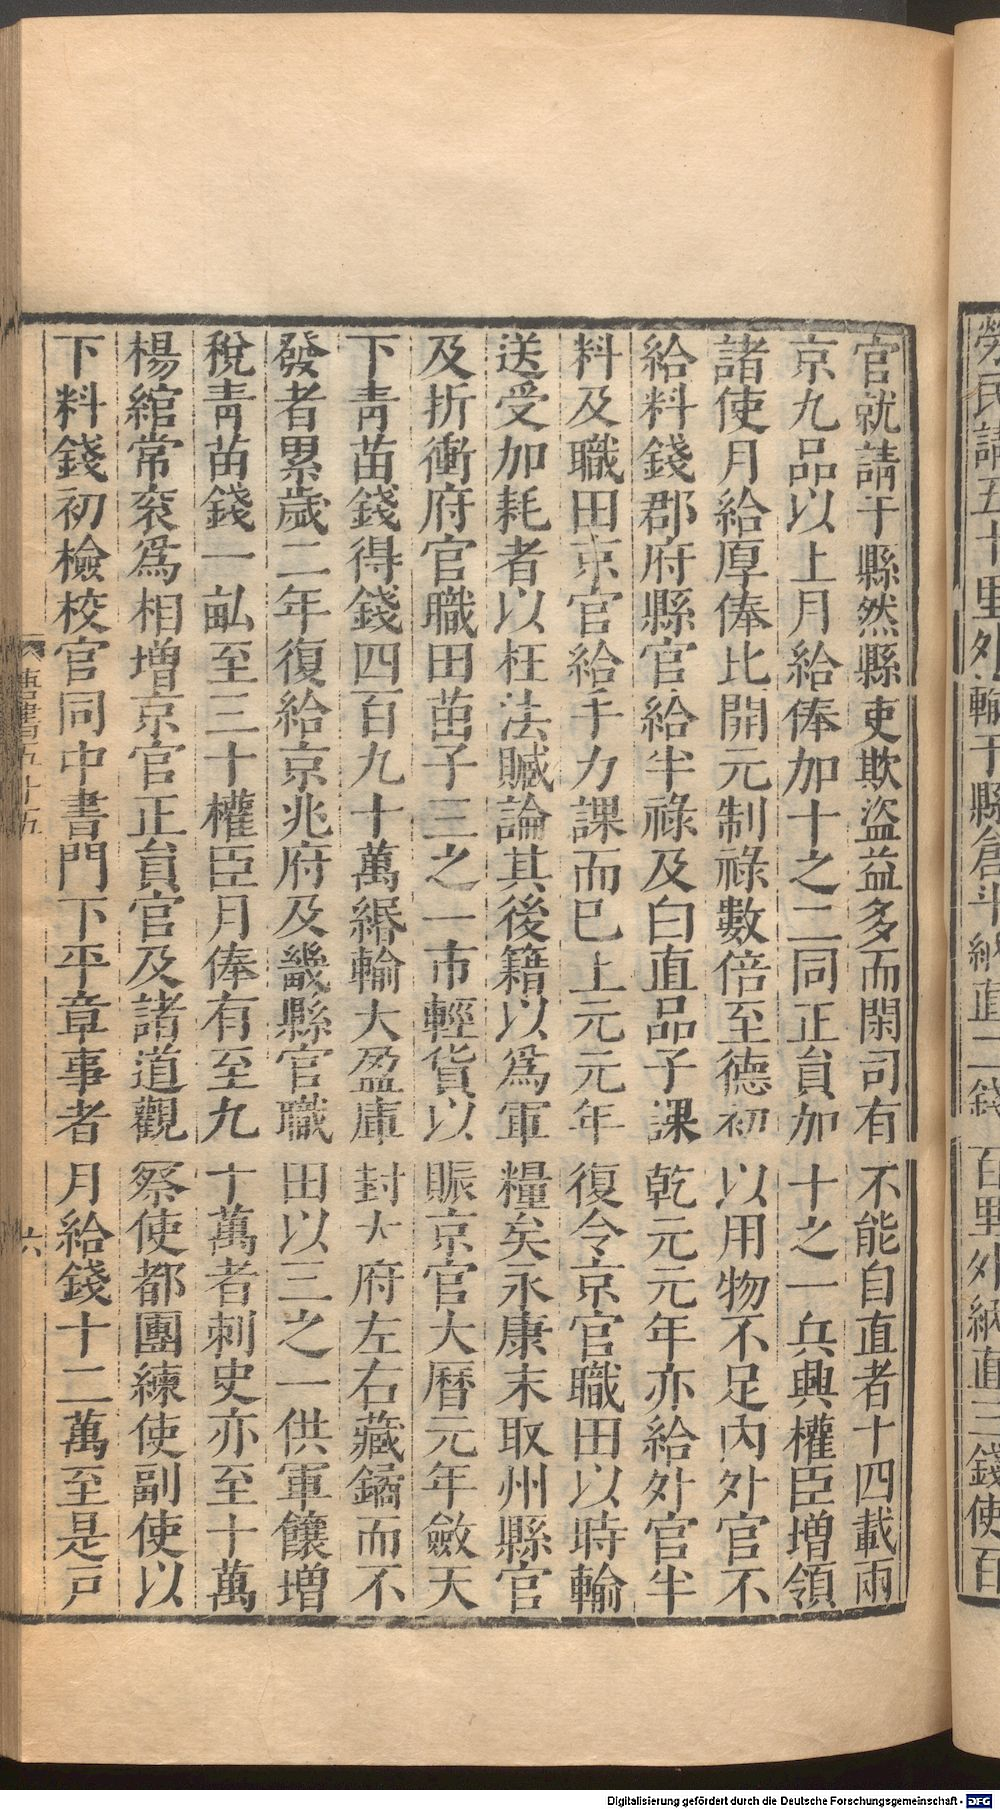 官就請于縣然縣吏欺盜益多而閑司有不能自直者十四載兩
京九品以上月給俸加十之二同正員加十之一兵興權臣增領
諸使月給厚俸比開元制祿數倍至德初以用物不足內外官不
給料錢郡府縣官給半祿及白直品子課乾元元年亦給外官半
料及職田京官給手力課而已上元元年復令京官職田以時輸
送受加耗者以枉法贓論其後籍以爲軍糧矣永康末取州縣官
及折衝府官職田苗子三之一市輕貨以賑京官大曆元年斂天
下靑苗錢得錢四百九十萬緡輸大盈庫封太府左右藏鐍而不
發者累歲二年復給京兆府及畿縣官職田以三之一供軍饟增
稅靑苗錢一畝至三十權臣月俸有至九十萬者刺史亦至十萬
楊綰常袞爲相增京官正員官及諸道觀察使都團練使副使以
下料錢初檢校官同中書門下平章事者月給錢十二萬至是戸
唐書五十五
六
Digitalisierung gefördert durch die Deutsche Forschungsgemeinschaft - DFG